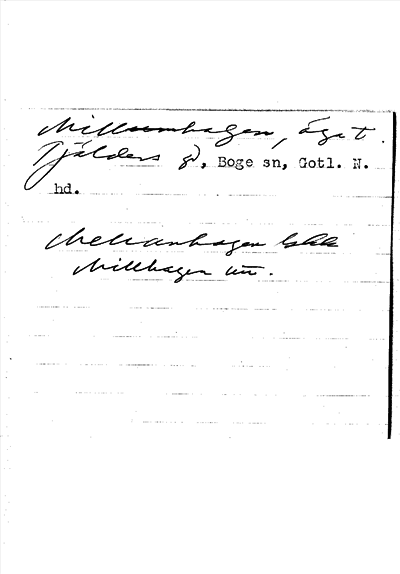 Millumhagen, ägot.
Tjälders gd, Boge sn, Gotl. N.
hd.
Mellanhagen
Millhagen